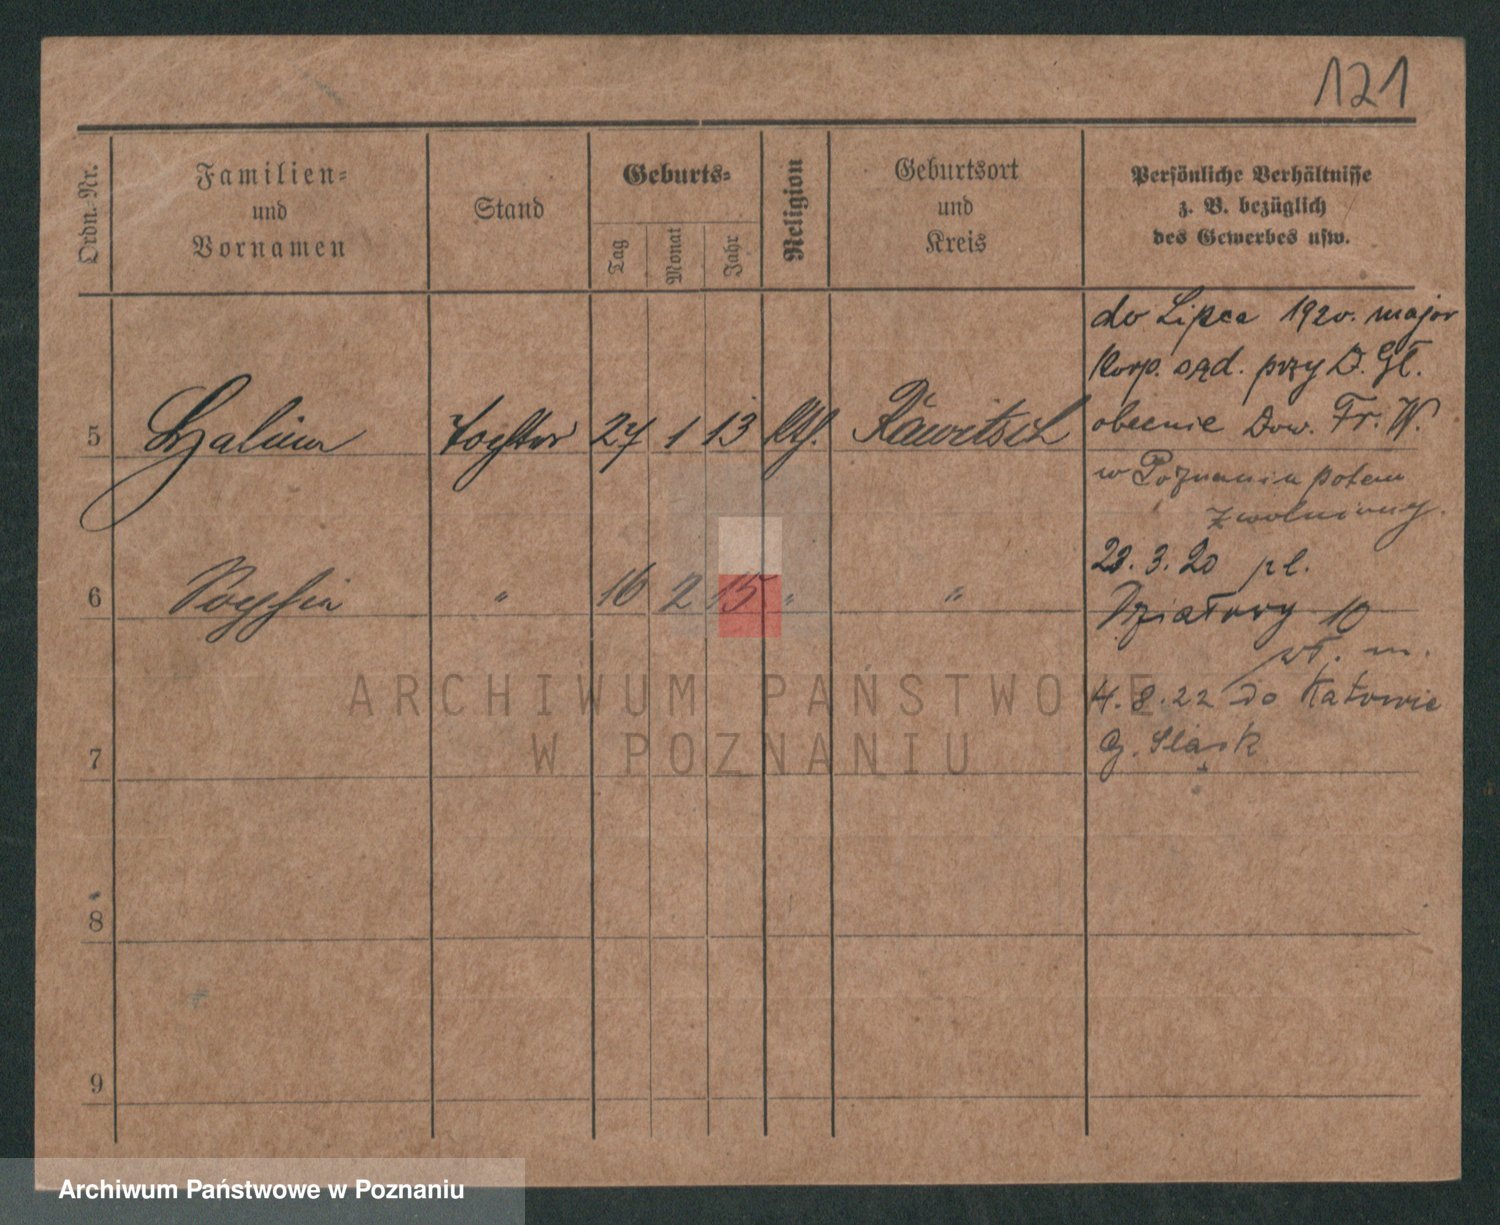 121
Ordn.-Nr.
Familien-
und
Vornamen
Stand
Geburts-
Tag
Monat
Jahr
Religion
Geburtsort
und
Kreis
Persönliche Verhältnisse
z. B. bezüglich
des Gewerbes usw.
do Lipca 1920. major
Korp. sąd. przy D. Gł.
obecnie Dow. Fr. W.
w Poznaniu potem
zwolniony.
5 Halina Tochter 27 1 13 kth. Rawitsch
23.3.20 pl.
Działowy 10
wł. m.
6 Zofia " 16 2 15 " "
4.8.22 do Katowic
G. Śląsk
7
8
9
ARCHIWUM PAŃSTWOWE
W POZNANIU
Archiwum Państwowe w Poznaniu